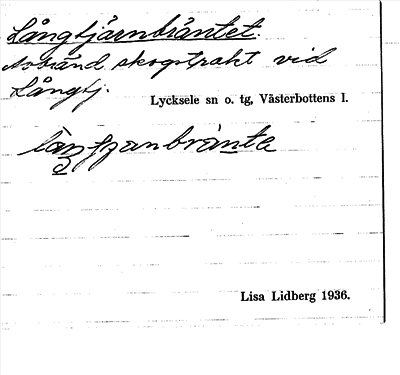 Långtjärnbräntet.
Avbränd skogstrakt vid
Långtj.
Lycksele sn o. tg, Västerbottens l.
Lisa Lidberg 1936.